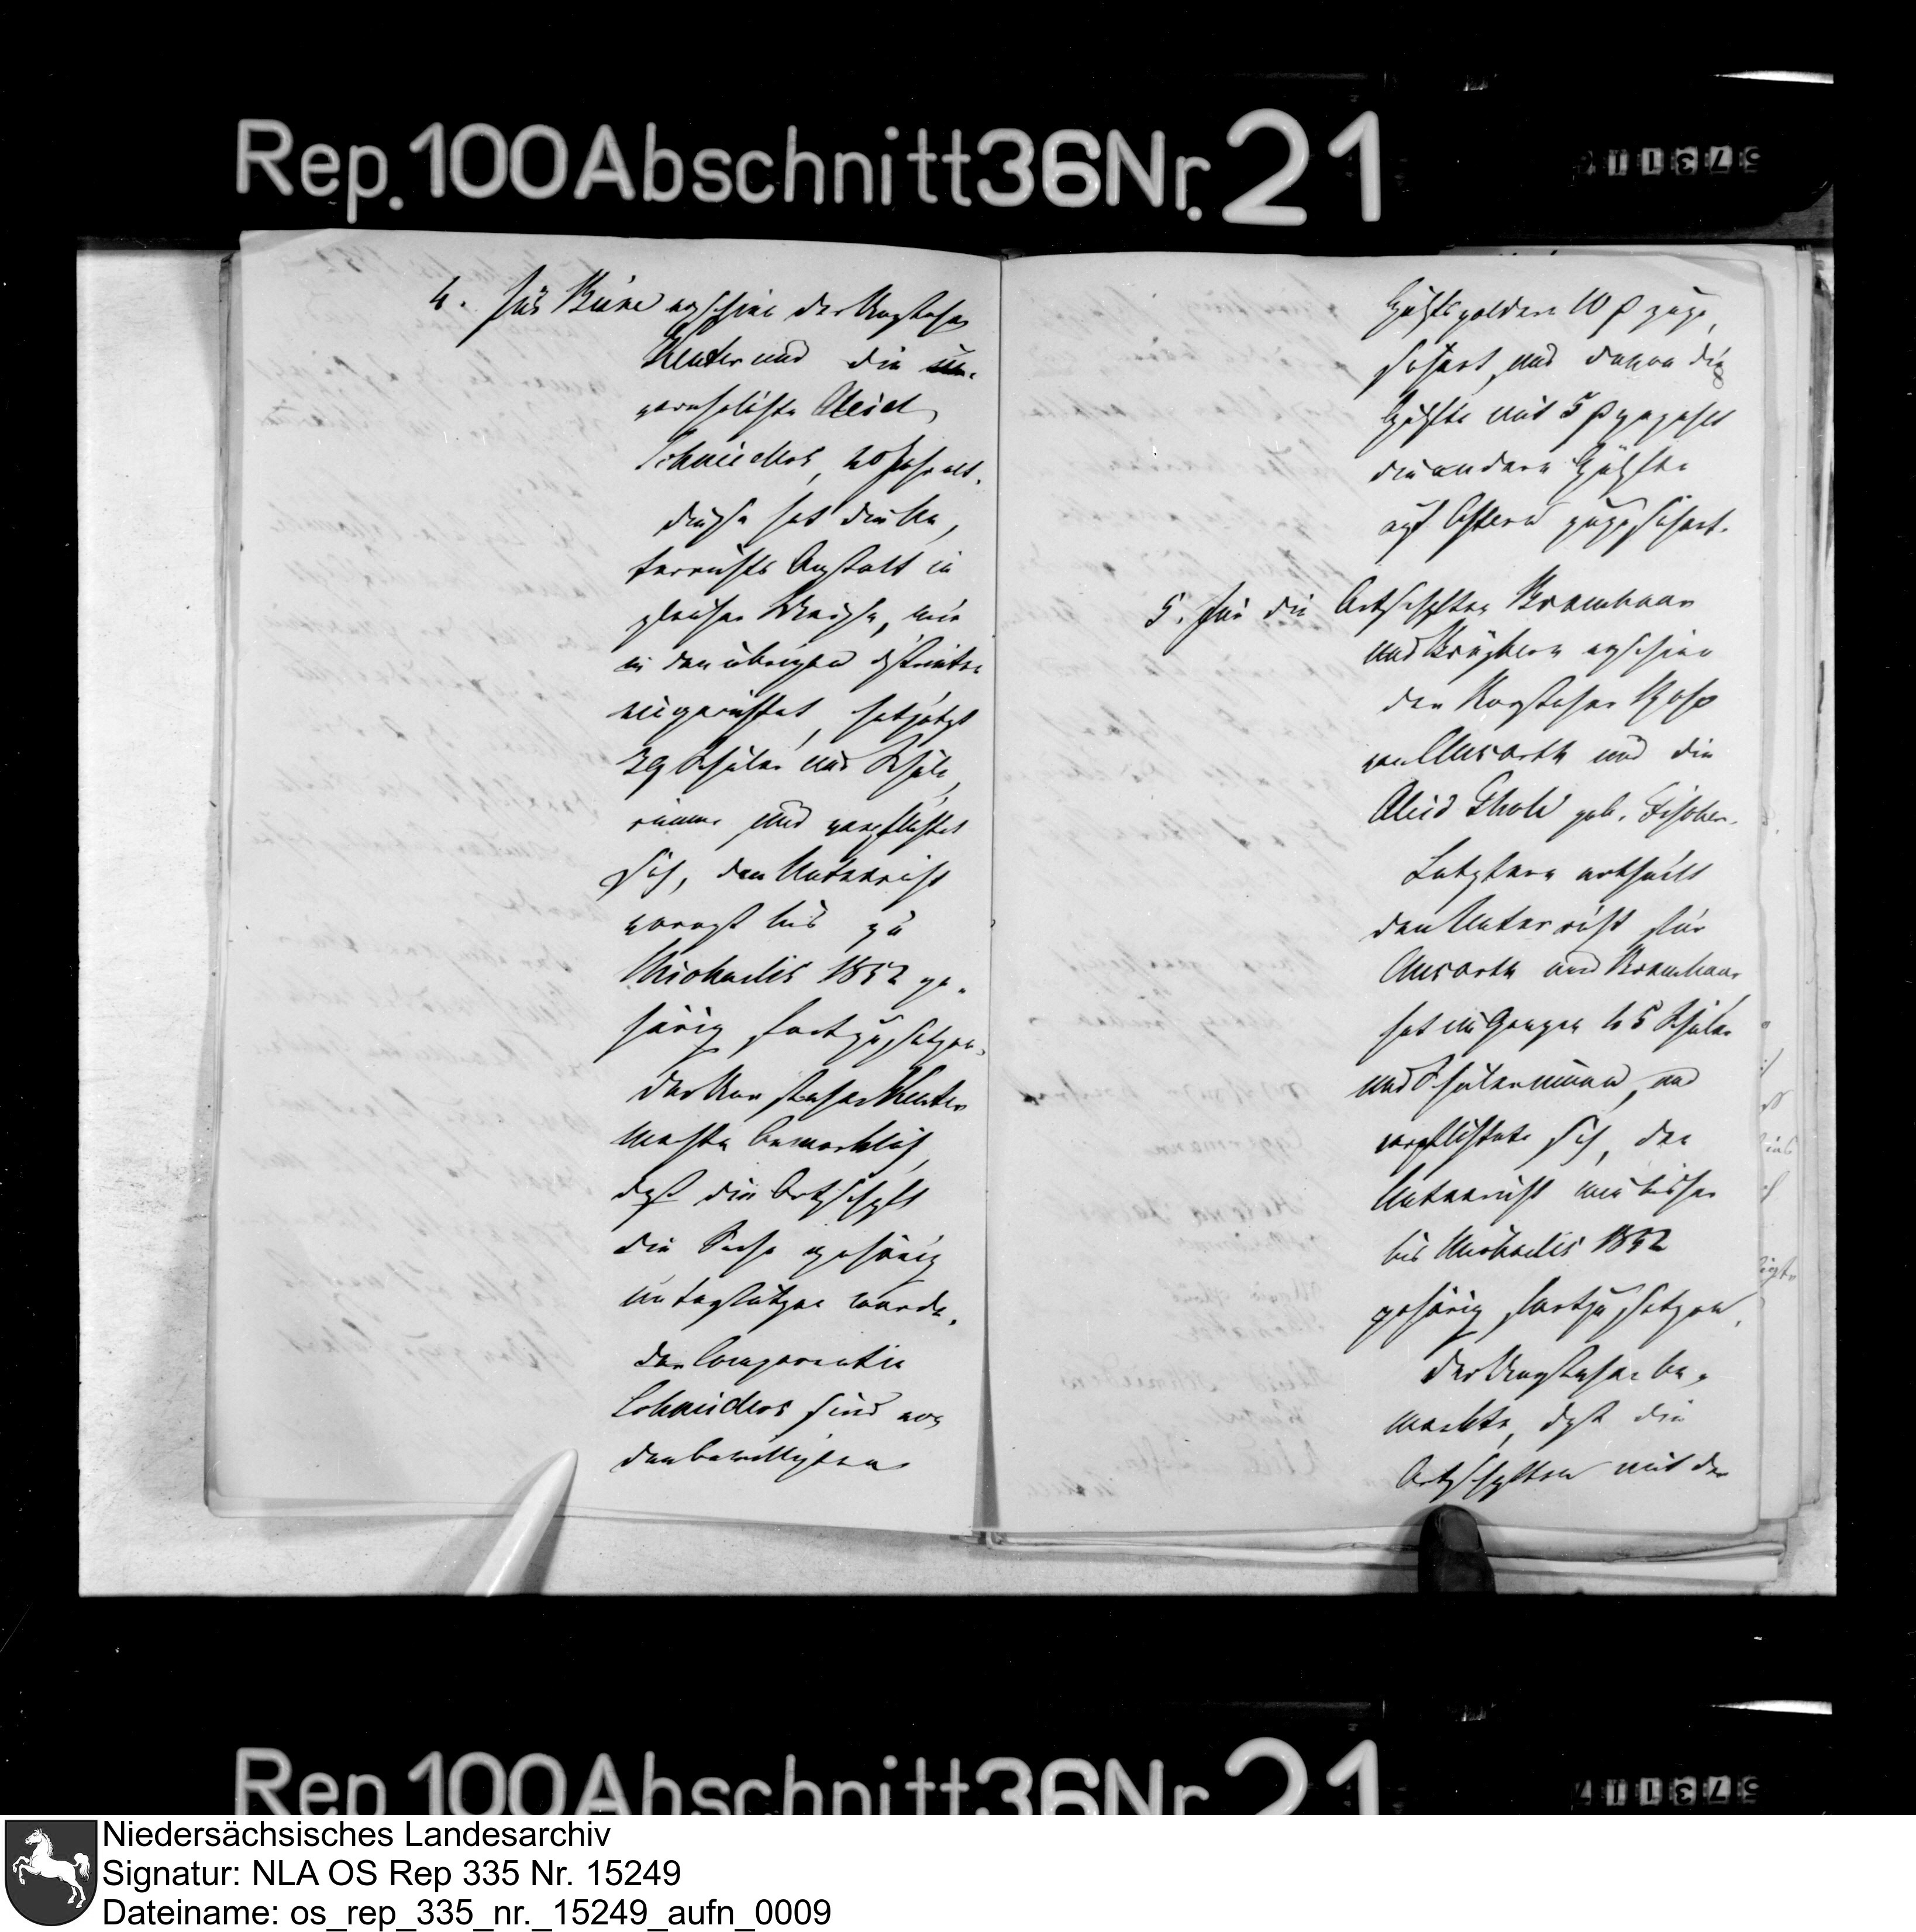 Rep. 100 Abschnitt 36 Nr. 21
4. Für Büne erschien der Vorsteher
und die un-
verehelichte Aleid
Schnieders, 40 Jahr alt.
Diese hat die Un-
terrichts Anstalt in
gleicher Weise, wie
in den übrigen Distrikten
eingerichtet, hat jetzt
29 Schüler und Schüle-
rinnen und verpflichtet
sich, den Unterricht
vorerst bis zu
Michaelis 1852 ge-
hörig fortzusetzen.
Der Vorsteher
machte bemerklich,
daß die Ortschaft
die Sache gehörig
unterstützen werde.
Der Comparentin
Schnieders sind von
den bewilligten
Hülfsgeldern 10 zuge-
sichert, und davon die
Hälfte mit 5 gezahlt
die andere Hälfte
auf Ostern zugesichert.
5. Für die Ortschaften Bramhaar
und erschien
der Vorsteher
von und die
Aleid geb.
Letztere ertheilt
den Unterricht für
und Bramhaar
hat im Ganzen 45 Schüler
und Schülerinnen, und
verpflichtete sich, den
Unterricht wie bisher
bis Michaelis 1852
gehörig fortzusetzen.
Der Vorsteher be-
merkte, daß die
Ortschaften mit der
Rep. 100 Abschnitt 36 Nr. 21
Niedersächsisches Landesarchiv
Signatur: NLA OS Rep 335 Nr. 15249
Dateiname: os_rep_335_nr._15249_aufn_0009